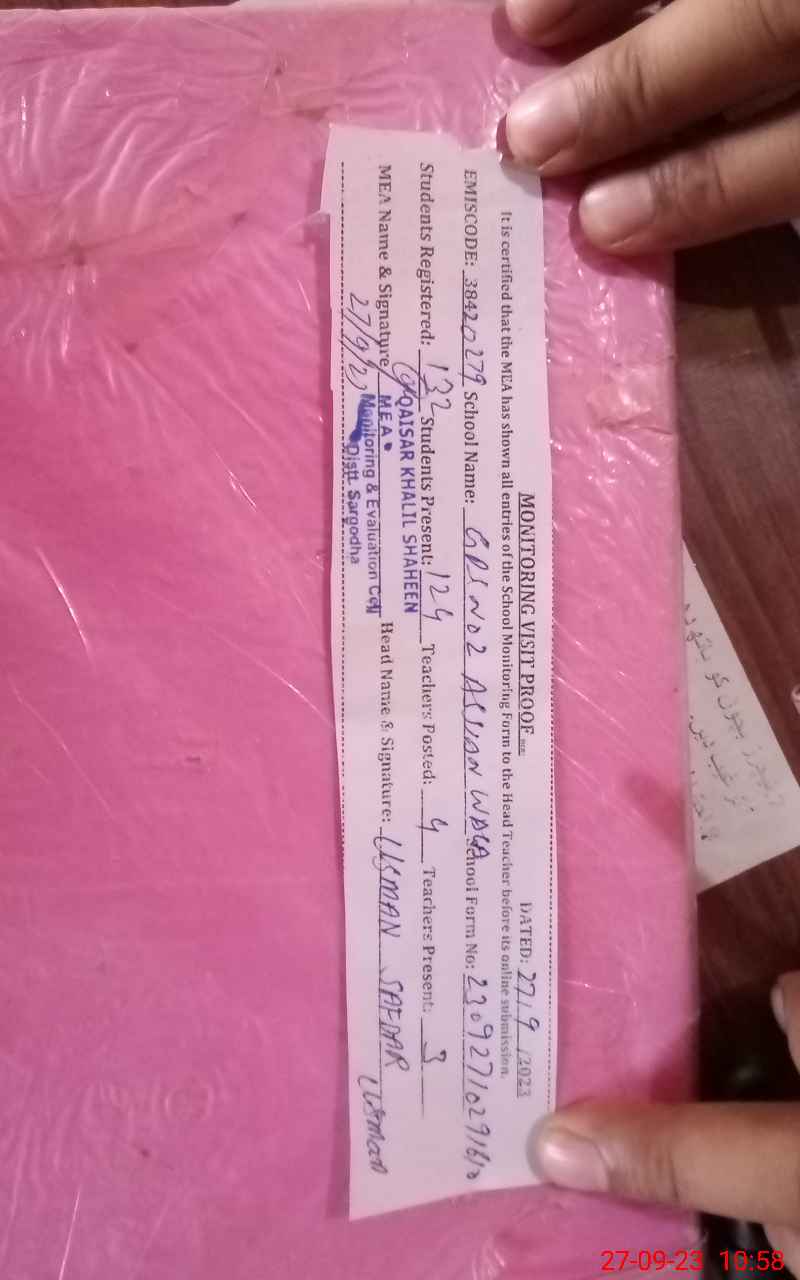 MONITORING VISIT PROOF DATED: 27/9/2023
It is certified that the MEA has shown all entries of the School Monitoring Form to the Head Teacher before its online submission.
EMISCODE: 38420279 School Name: NO 2 WALA School Form No:
Students Registered: 132 Students Present: 124 Teachers Posted: 4 Teachers Present: 3
MEA Name & Signature Head Name & Signature: USMAN SAFDAR Usman
QAISAR KHALIL SHAHEEN
MEA
Monitoring & Evaluation Cell
Distt. Sargodha
27/9/2
27-09-23 10:58